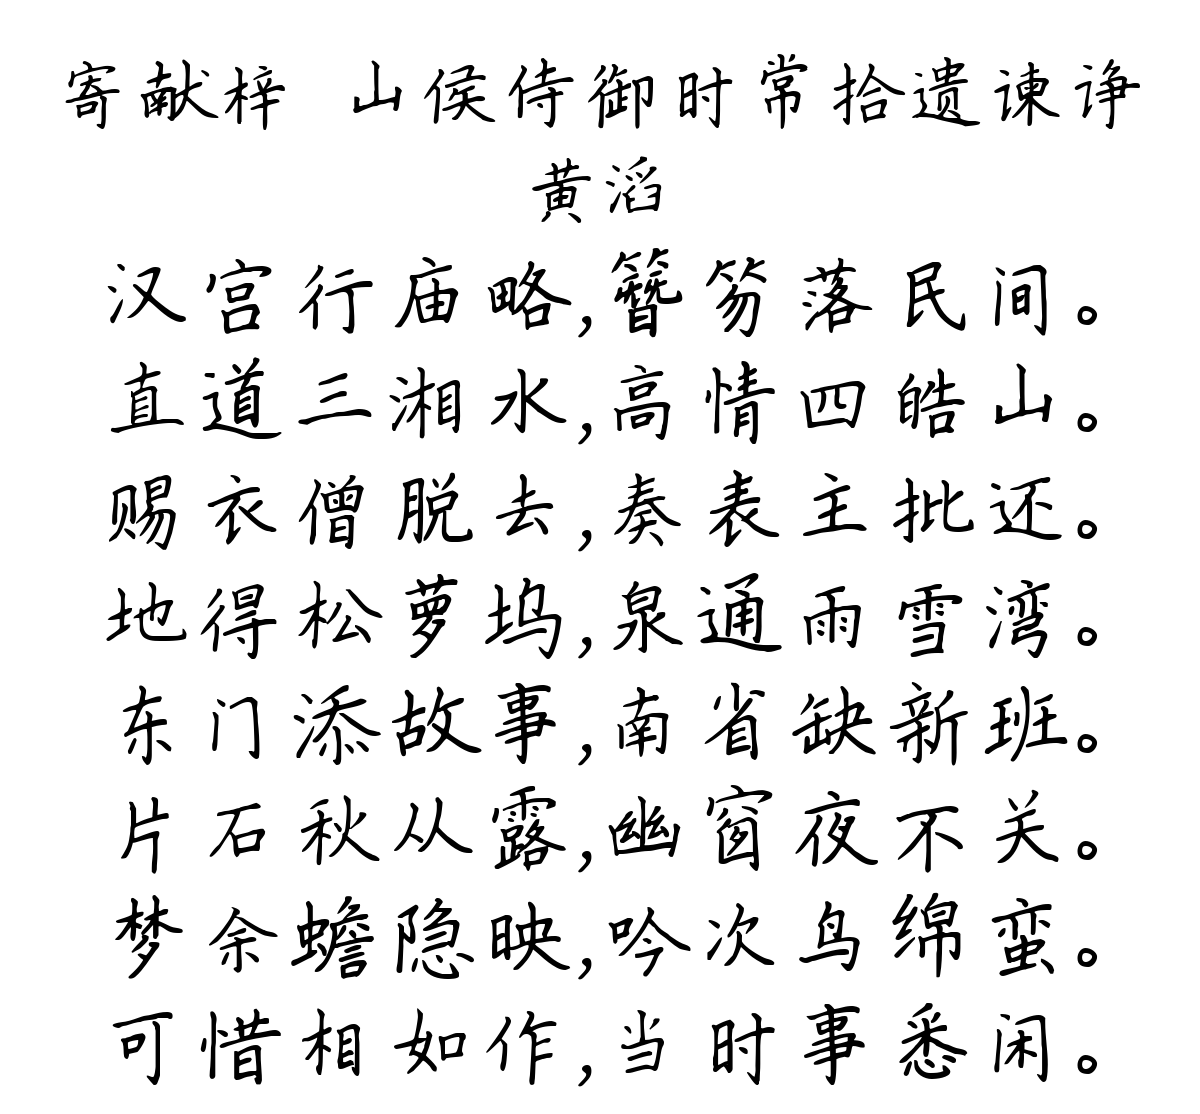 寄献梓 山侯侍御时常拾遗谏诤
黄滔
汉宫行庙略,簪笏落民间。
直道三湘水,高情四皓山。
赐衣僧脱去,奏表主批还。
地得松萝坞,泉通雨雪湾。
东门添故事,南省缺新班。
片石秋从露,幽窗夜不关。
梦余蟾隐映,吟次鸟绵蛮。
可惜相如作,当时事悉闲。